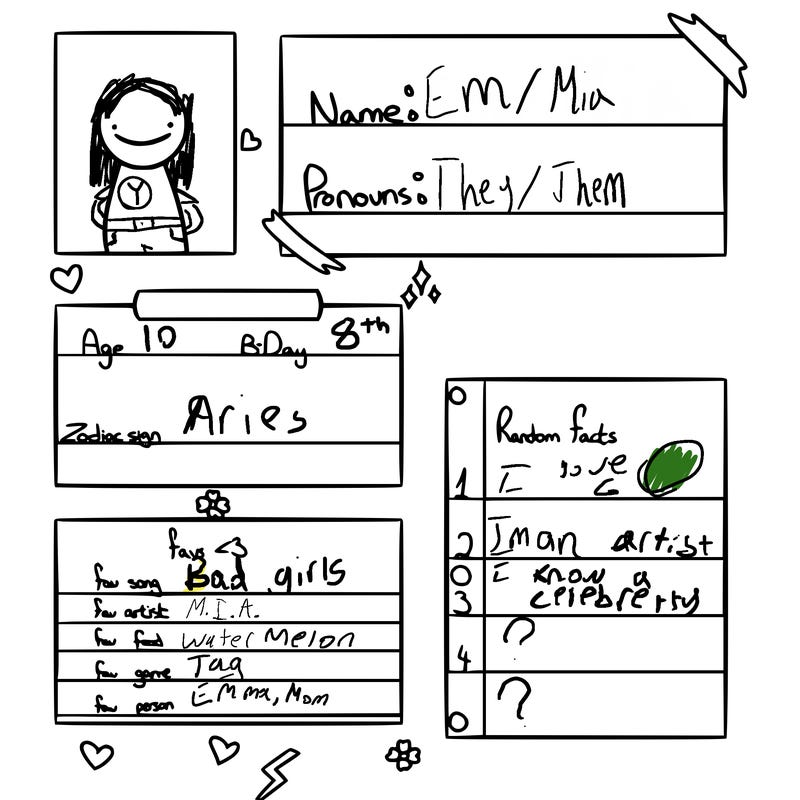 Y
Name: Em/Mia
Pronouns: They/Them
Age 10 B-Day 8th
Zodiac sign Aries
favs <3
fav song Bad girls
fav artist M.I.A.
fav food water Melon
fav game Tag
fav person Emma, Mom
Random facts
1 I love
2 I'm an artist
3 I know a
celebrerty
4 ?
?